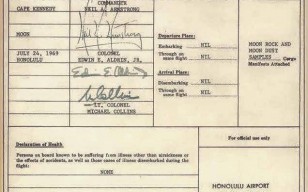 COMMANDER
CAPE KENNEDY
NEIL A. ARMSTRONG
MOON
JULY 24, 1969
HONOLULU
COLONEL
EDWIN E. ALDRIN, JR.
LT. COLONEL
MICHAEL COLLINS
Departure Place:
Embarking NIL
Through on same flight NIL
Arrival Place:
Disembarking NIL
Through on same flight NIL
MOON ROCK AND
MOON DUST
SAMPLES Cargo
Manifests Attached
Declaration of Health
For official use only
Persons on board known to be suffering from illness other than airsickness or
the effects of accidents, as well as those cases of illness disembarked during the
flight:
NONE
HONOLULU AIRPORT